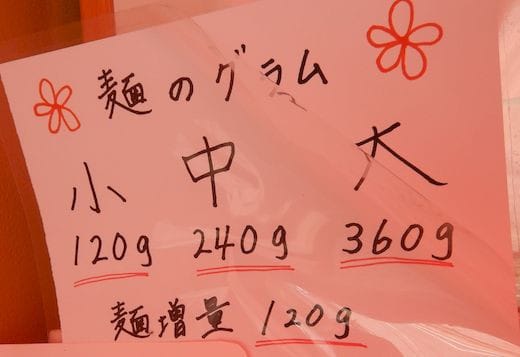 麺のグラム
小 中 大
120g 240g 360g
麺増量 120g